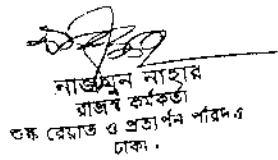 নাজমুন নাহার
রাজস্ব কর্মকর্তা
শুল্ক রেয়াত ও প্রত্যর্পন পরিদপ্তর
ঢাকা।